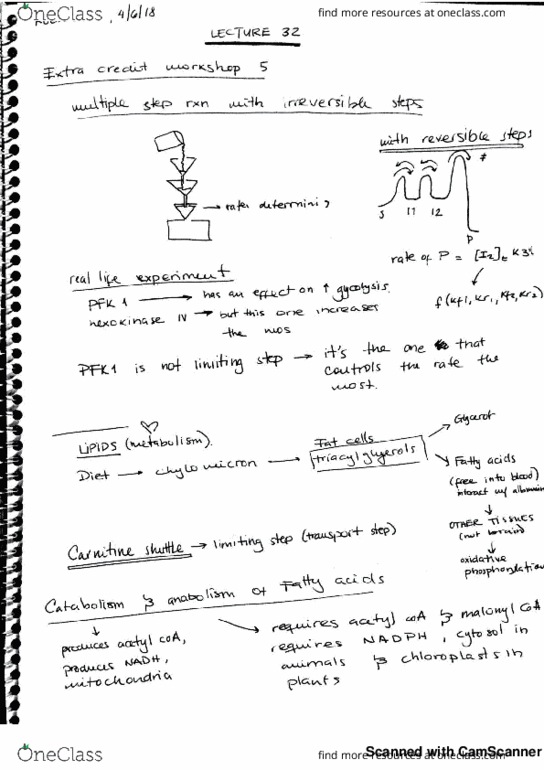 OneClass
find more resources at oneclass.com
, 4/6/18
LECTURE 32
Extra credit workshop 5
multiple step rxn with irreversible steps
with reversible steps
→ rate determini
S I1 I2 ‡
P
rate of P = [I2]t K3
f(Kf1, Kr1, Kf2, Kr2)
real life experiment
PFK 1 → has an effect on ↑ glycolysis.
hexokinase IV → but this one increases
the mos
PFK1 is not limiting step → it's the one that
controls the rate the
most.
LIPIDS (metabolism).
Diet → chylomicron → Fat cells
triacylglyerols
Glycerol
Fatty acids
(free into blood)
interact w/
OTHER TISSUES
(not brain)
oxidative
phosphorylation
Carnitine shuttle → limiting step (transport step)
Catabolism & anabolism of Fatty acids
produces acetyl coA,
produces NADH,
mitochondria
requires acetyl coA & malonyl CoA
requires NADPH, cytosol in
animals & chloroplasts in
plants
Scanned with CamScanner
OneClass
find more resources at oneclass.com